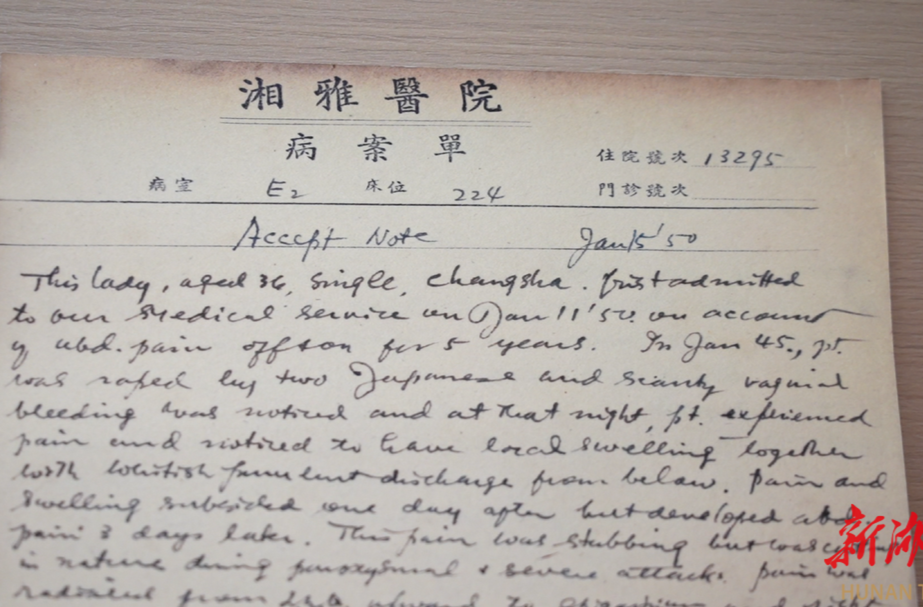 湘雅醫院
病案單
住院號次 13295
病室 E2 床位 224 門診號次
Accept Note Jan 15 '50
This lady, aged 36, single, Changsha. first admitted
to our medical service on Jan 11 '50. on account
of abd. pain off & on for 5 years. In Jan 45., pt.
was raped by two Japanese and scanty vaginal
bleeding was noticed and at that night, pt. experienced
pain and noticed to have local swelling together
with whitish purulent discharge from below. Pain and
swelling subsided one day after but developed abd.
pain 3 days later. This pain was stabbing but was
in nature during paroxysmal & severe attacks. Pain was
radiated from upward to and
新湖
HUNAN